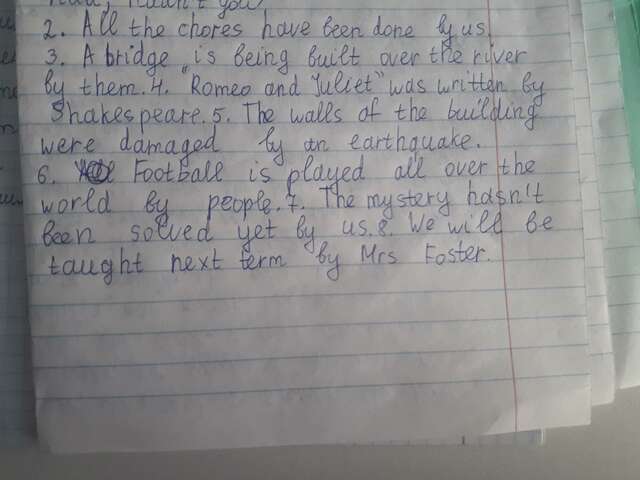 2. All the chores have been done by us.
3. A bridge is being built over the river
by them. 4. "Romeo and Juliet" was written by
Shakespeare. 5. The walls of the building
were damaged by an earthquake.
6. Football is played all over the
world by people. 7. The mystery hasn't
been solved yet by us. 8. We will be
taught next term by Mrs Foster.